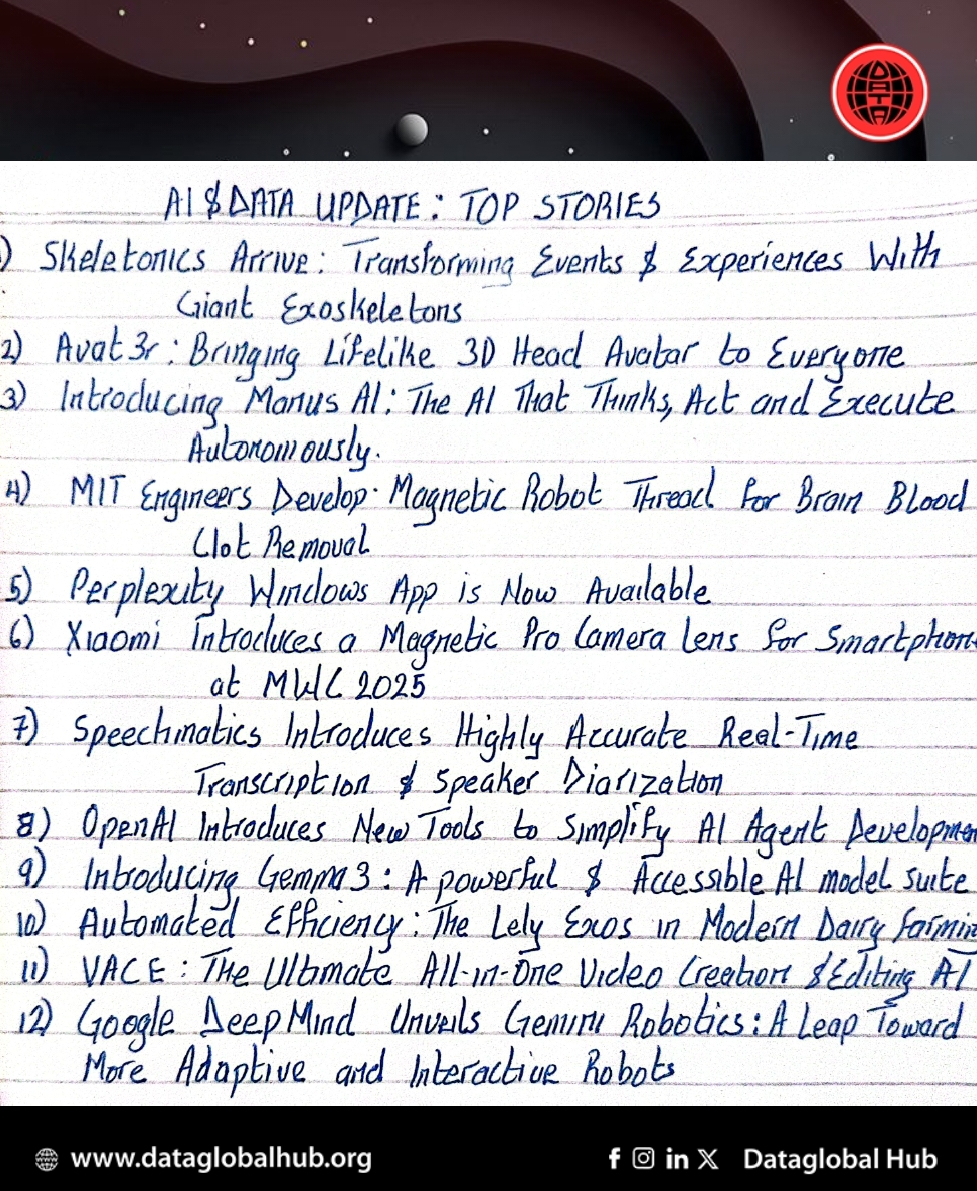 DATA
AI & DATA UPDATE: TOP STORIES
1) Skeletonics Arrive: Transforming Events & Experiences With
Giant Exoskeletons
2) Avat3r: Bringing Lifelike 3D Head Avatar to Everyone
3) Introducing Manus AI: The AI That Thinks, Act and Execute
Autonomously.
4) MIT Engineers Develop Magnetic Robot Thread for Brain Blood
Clot Removal
5) Perplexity Windows App is Now Available
6) Xiaomi Introduces a Magnetic Pro Camera Lens for Smartphon
at MWC 2025
7) Speechmatics Introduces Highly Accurate Real-Time
Transcription & Speaker Diarization
8) OpenAI Introduces New Tools to Simplify AI Agent Developmen
9) Introducing Gemma 3: A powerful & Accessible AI model suite
10) Automated Efficiency: The Lely Exos in Modern Dairy farmin
11) VACE: The Ultimate All-in-One Video Creation & Editing AI
12) Google DeepMind Unveils Gemini Robotics: A Leap Toward
More Adaptive and Interactive Robots
www.dataglobalhub.org f in X Dataglobal Hub